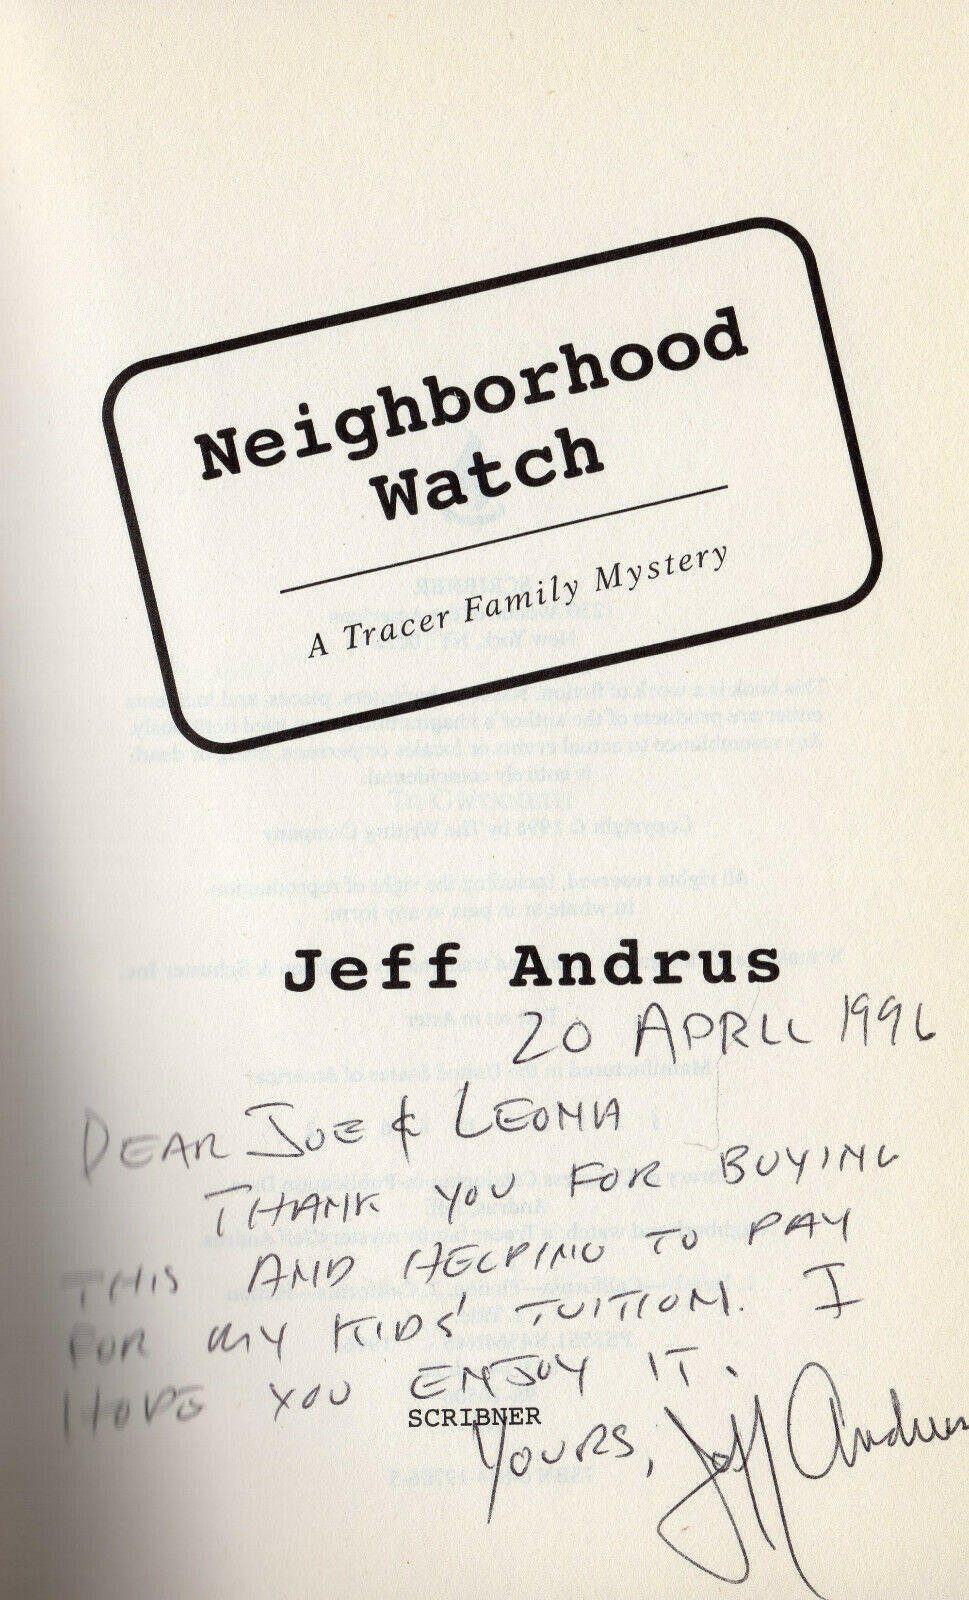 Neighborhood
Watch
A Tracer Family Mystery
Jeff Andrus
20 APRIL 1996
DEAR JOE & LEONA
THANK YOU FOR BUYING
THIS AND HELPING TO PAY
FOR MY KIDS' TUITION. I
HOPE YOU ENJOY IT.
SCRIBNER
YOURS, Jeff Andrus